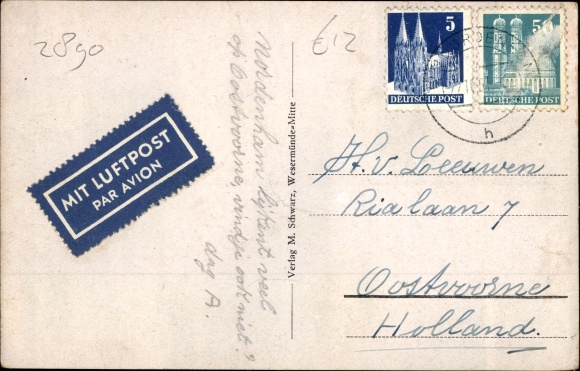 2890
€12
5
DEUTSCHE POST
50
DEUTSCHE POST
h
MIT LUFTPOST
PAR AVION
Nordenham lijkent veel
op Oostvoorne, vind je ook niet?
dag A.
Verlag M. Schwarz, Wesermünde-Mitte
H. v. Leeuwen
Rialaan 7
Oostvoorne
Holland.